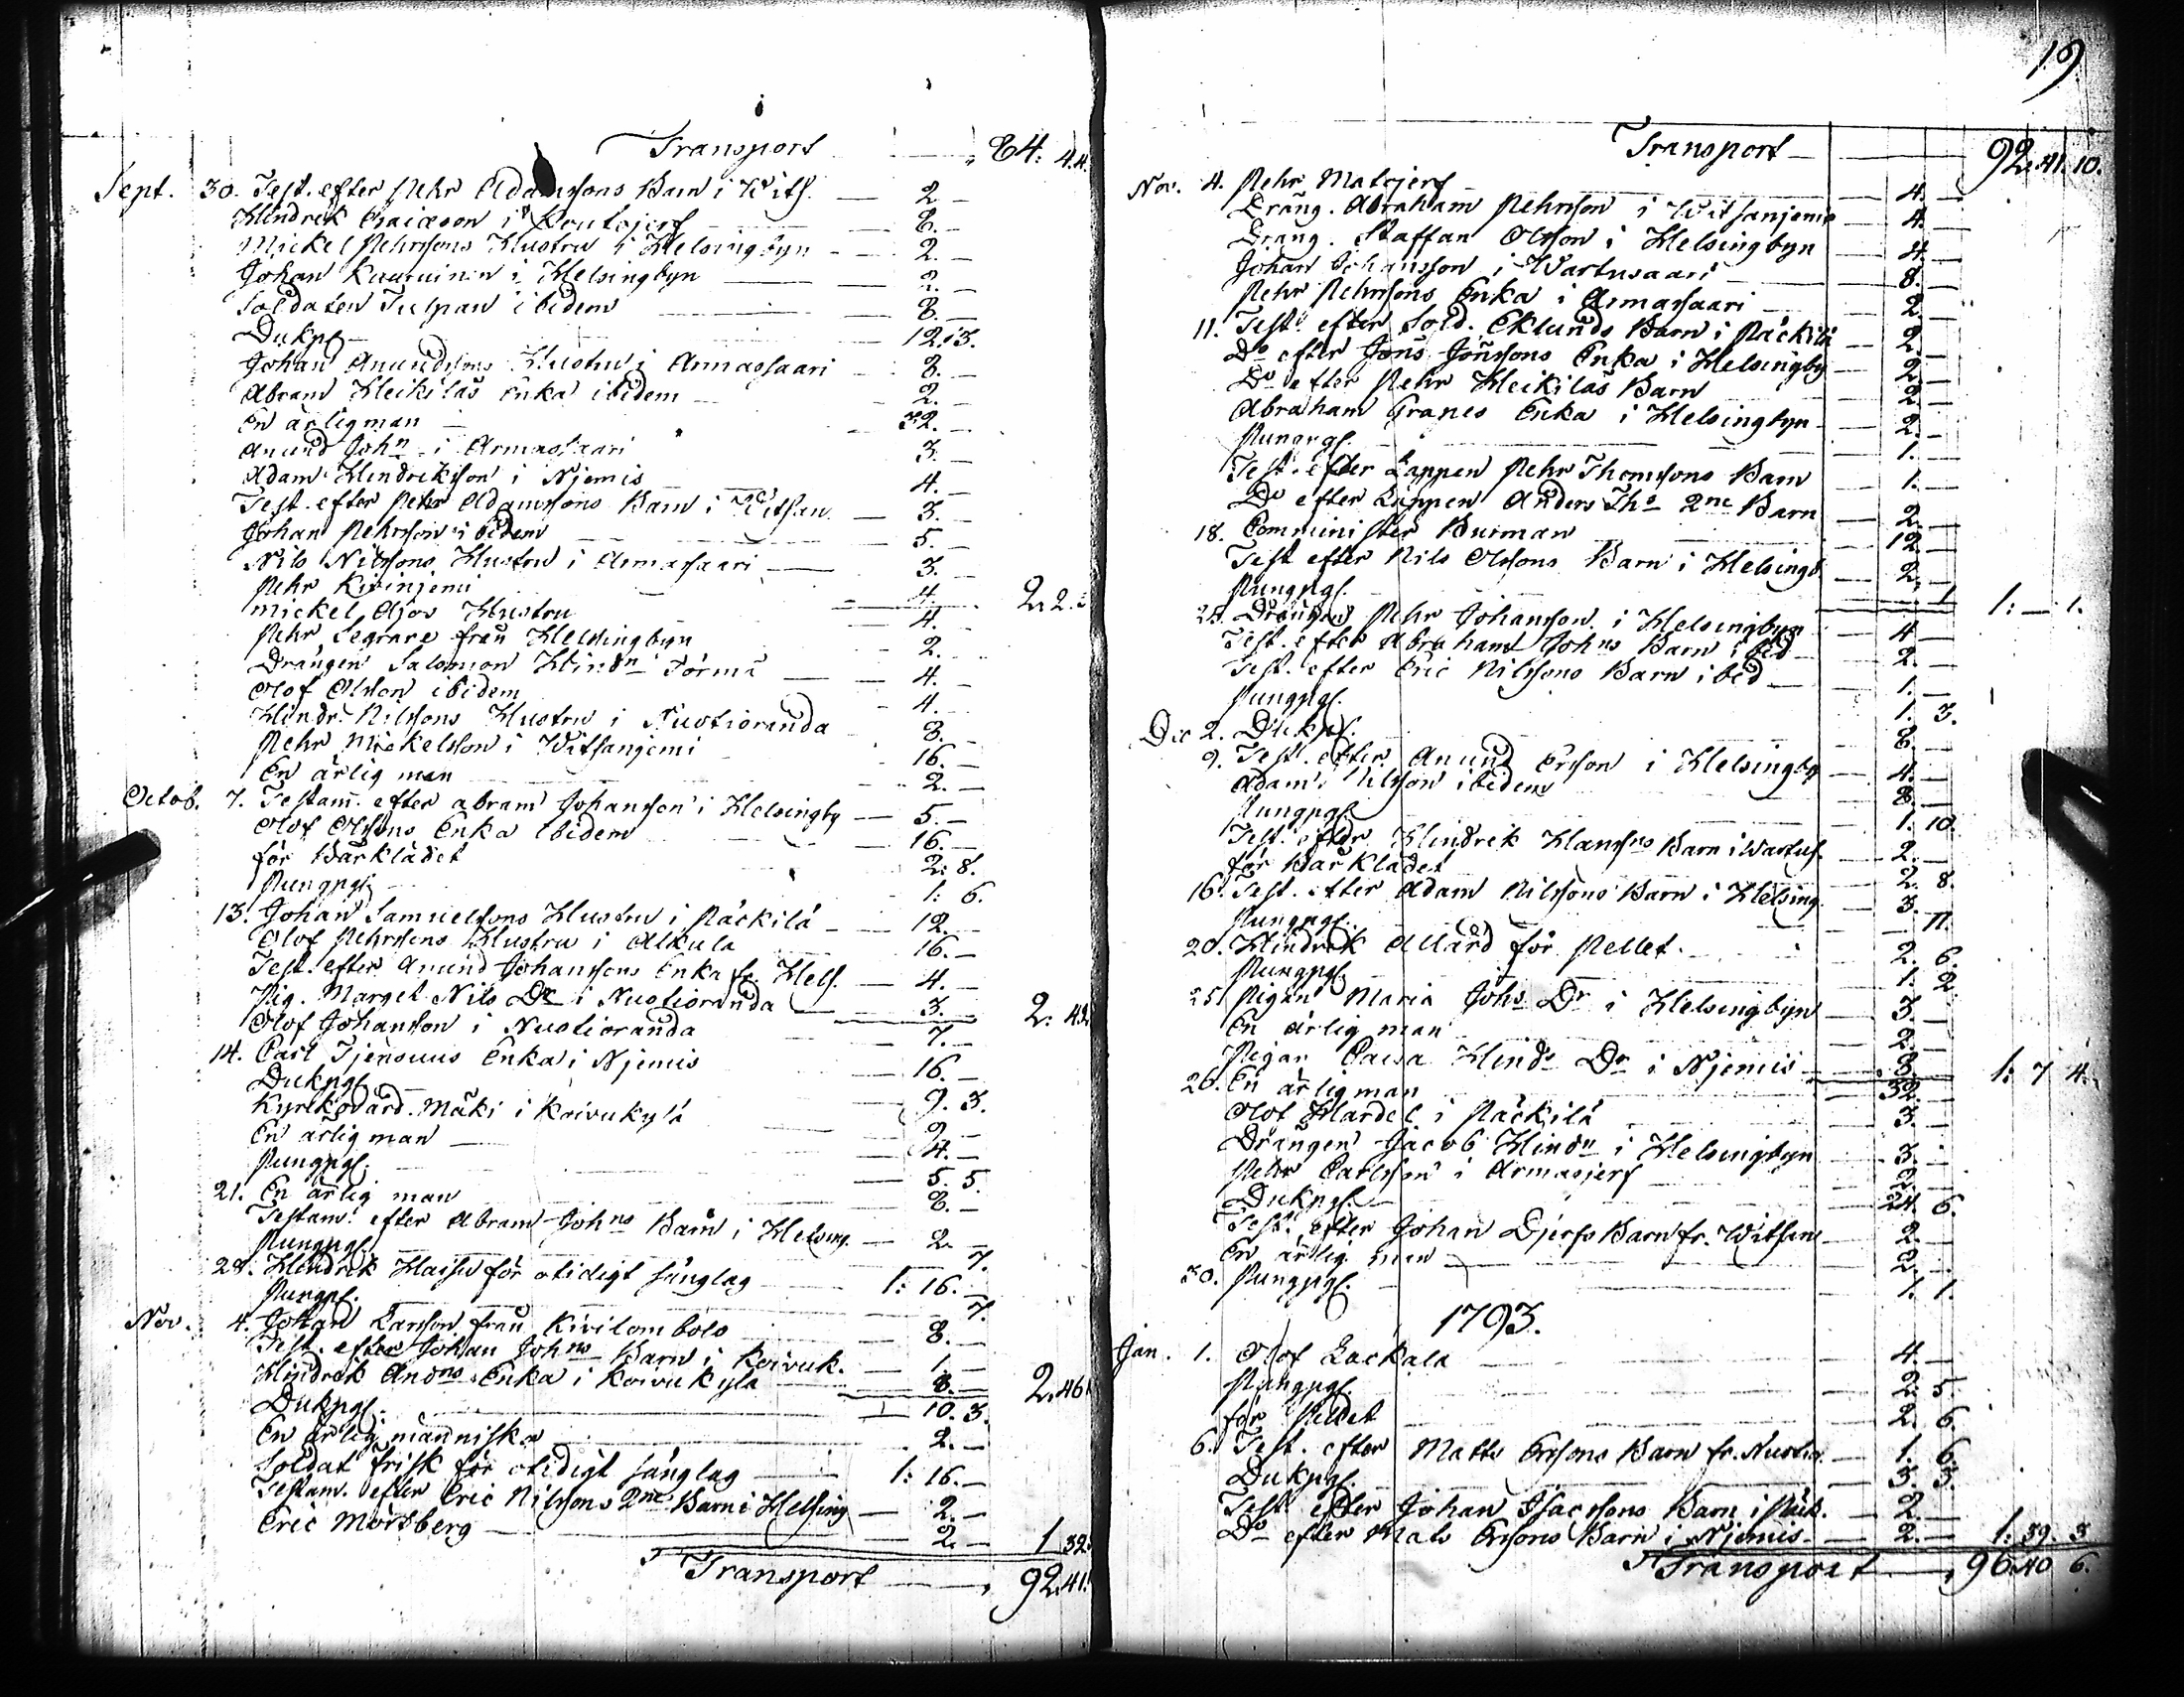 Transport 84. 44.
Sept. 30. Test. efter Pehr Adamssons Barn i Wits. 2. –
Hindrik i 8. –
Mickel Pehrssons Hustru i Helsingbyn 2. –
Johan Kauppinen i Helsingbyn 2. –
Soldaten Tulpan ibidem 8. –
Dukpgr 12. 3.
Johan Anundssons Hustru i Armassaari 8. –
Abram Heikiläs Enka ibidem 2. –
En ärlig man 32. –
Anund John i Armassaari 3. –
Adam Hindriksson i Njemis 4. –
Test. efter Pehr Adamssons Barn i Witsan. 3. –
Johan Pehrsson ibidem 5. –
Nils Nilssons Hustru i Armassaari 3. –
Pehr Kivinjemi 4. 2. 2.
Mickel Ajos Hustru 4. –
Pehr Segrare från Helsingbyn 2. –
Drängen Salomon Hindn Törmä 4. –
Olof Olsson ibidem 4. –
Hindr. Nilssons Hustru i Nuotioranda 8. –
Pehr Mickelsson i Witsanjemi 16. –
En ärlig man 2. –
Octob. 7. Testam. efter Abram Johansson i Helsingby 5. –
Olof Olssons Enka ibidem 16. –
för Bårklädet 2. 8.
Pungpgr 1. 6.
13. Johan Samuelssons Hustru i Päckilä 12. –
Olof Pehrssons Hustru i Alkula 16. –
Test. efter Anund Johanssons Enka fr. Hels. 4. –
Pig. Marget Nils Dr i Nuotioranda 3. – 2. 42.
Olof Johansson i Nuotioranda 7. –
14. Carl Enka i Njemis 16. –
Dukpgr 9. 3.
Kyrkovärd. Mäki i Koivukylä 2. –
En ärlig man 4. –
Pungpgr. 5. 5.
21. En ärlig man 8. –
Testam. efter Abram Johns Barn i Helsing. 2. –
Pungpgr 7.
28. Hindrik för otidigt sänglag 1: 16. –
Pungpgr. 7.
Nov. 4. Johan Larsson från Kivilombolo 8. –
Test. efter Johan Johns Barn i Koivuk. 1. –
Hindrik Andns Enka i Koivukylä 8. – 2. 46.
Dukpgr. 10. 3.
En ärlig människa 2. –
Soldat Frisk för otidigt sänglag 1: 16. –
Testam. efter Eric Nilssons 2ne Barn i Helsing 2. –
Eric Mörtberg 2. – 1 32.
Transport 92. 41.
19
Transport 92. 41. 10.
Nov. 4. Pehr 4. –
Dräng. Abraham Pehrsson i Witsanjemi 4. –
Dräng. Staffan Olsson i Helsingbyn 4. –
Johan Johansson i Wartusaari 8. –
Pehr Pehrssons Enka i Armassaari 2. –
11. Test. efter Sold. Eklunds Barn i Päckilä 2. –
Do efter Jöns Jönssons Enka i Helsingby 2. –
Do efter Pehr Heikiläs Barn 2. –
Abraham Granes Enka i Helsingbyn 2. –
Pungpgr. 1. –
Test. efter Lappen Pehr Thomssons Barn 1. –
Do efter Lappen Anders Tho 2ne Barn 2. –
18. Comminister Burman 12. –
Test. efter Nils Olssons Barn i Helsingb. 2. –
Pungpgr. 1 1: – 1.
25. Drängen Pehr Johansson i Helsingbyn 4. –
Test. efter Abraham Johns Barn ibid 2. –
Test. efter Eric Nilssons Barn ibid 1. –
Pungpgr. 1. 3.
Dec 2. Dukpgr. 8. –
9. Test. efter Anund Ersson i Helsingby 4. –
Adam Nilsson ibidem 8. –
Pungpgr. 1. 10.
Test. efter Hindrik Hanssns Barn i Wartus. 2. –
för Bårklädet 2. 8.
16. Test. efter Adam Nilssons Barn i Helsing. 3. –
Pungpgr. 11.
20. Hindrik Allard för Pellet 2. 6.
Pungpgr. 1. 2.
25. Pigan Maria Johs Dr i Helsingbyn 3. –
En ärlig man 2. –
Pigan Caisa Hinds Dr i Njemis 8. – 1: 7 4.
26. En ärlig man 32. –
Olof i Päckilä 3. –
Drängen Jacob Hindn i Helsingbyn 3. –
Pehr Carlsson i Armasjerf 3. –
Dukpgr. 24. 6.
Test. efter Johan Djerfs Barn fr. Witsan. 2. –
En ärlig man 2. –
30. Pungpgr. 1. 1.
1793.
Jan. 1. Olof Lackala 4. –
Pungpgr. 2. 5.
för Pellet 2. 6.
6. Test. efter Matts Ersons Barn fr. Nuotior. 1. 6.
Dukpgr. 3. 3.
Test. efter Johan Isacssons Barn i Päck. 2. –
Do efter Mats Ersons Barn i Njemis 2. – 1: 39. 3
Transport 96. 40 6.